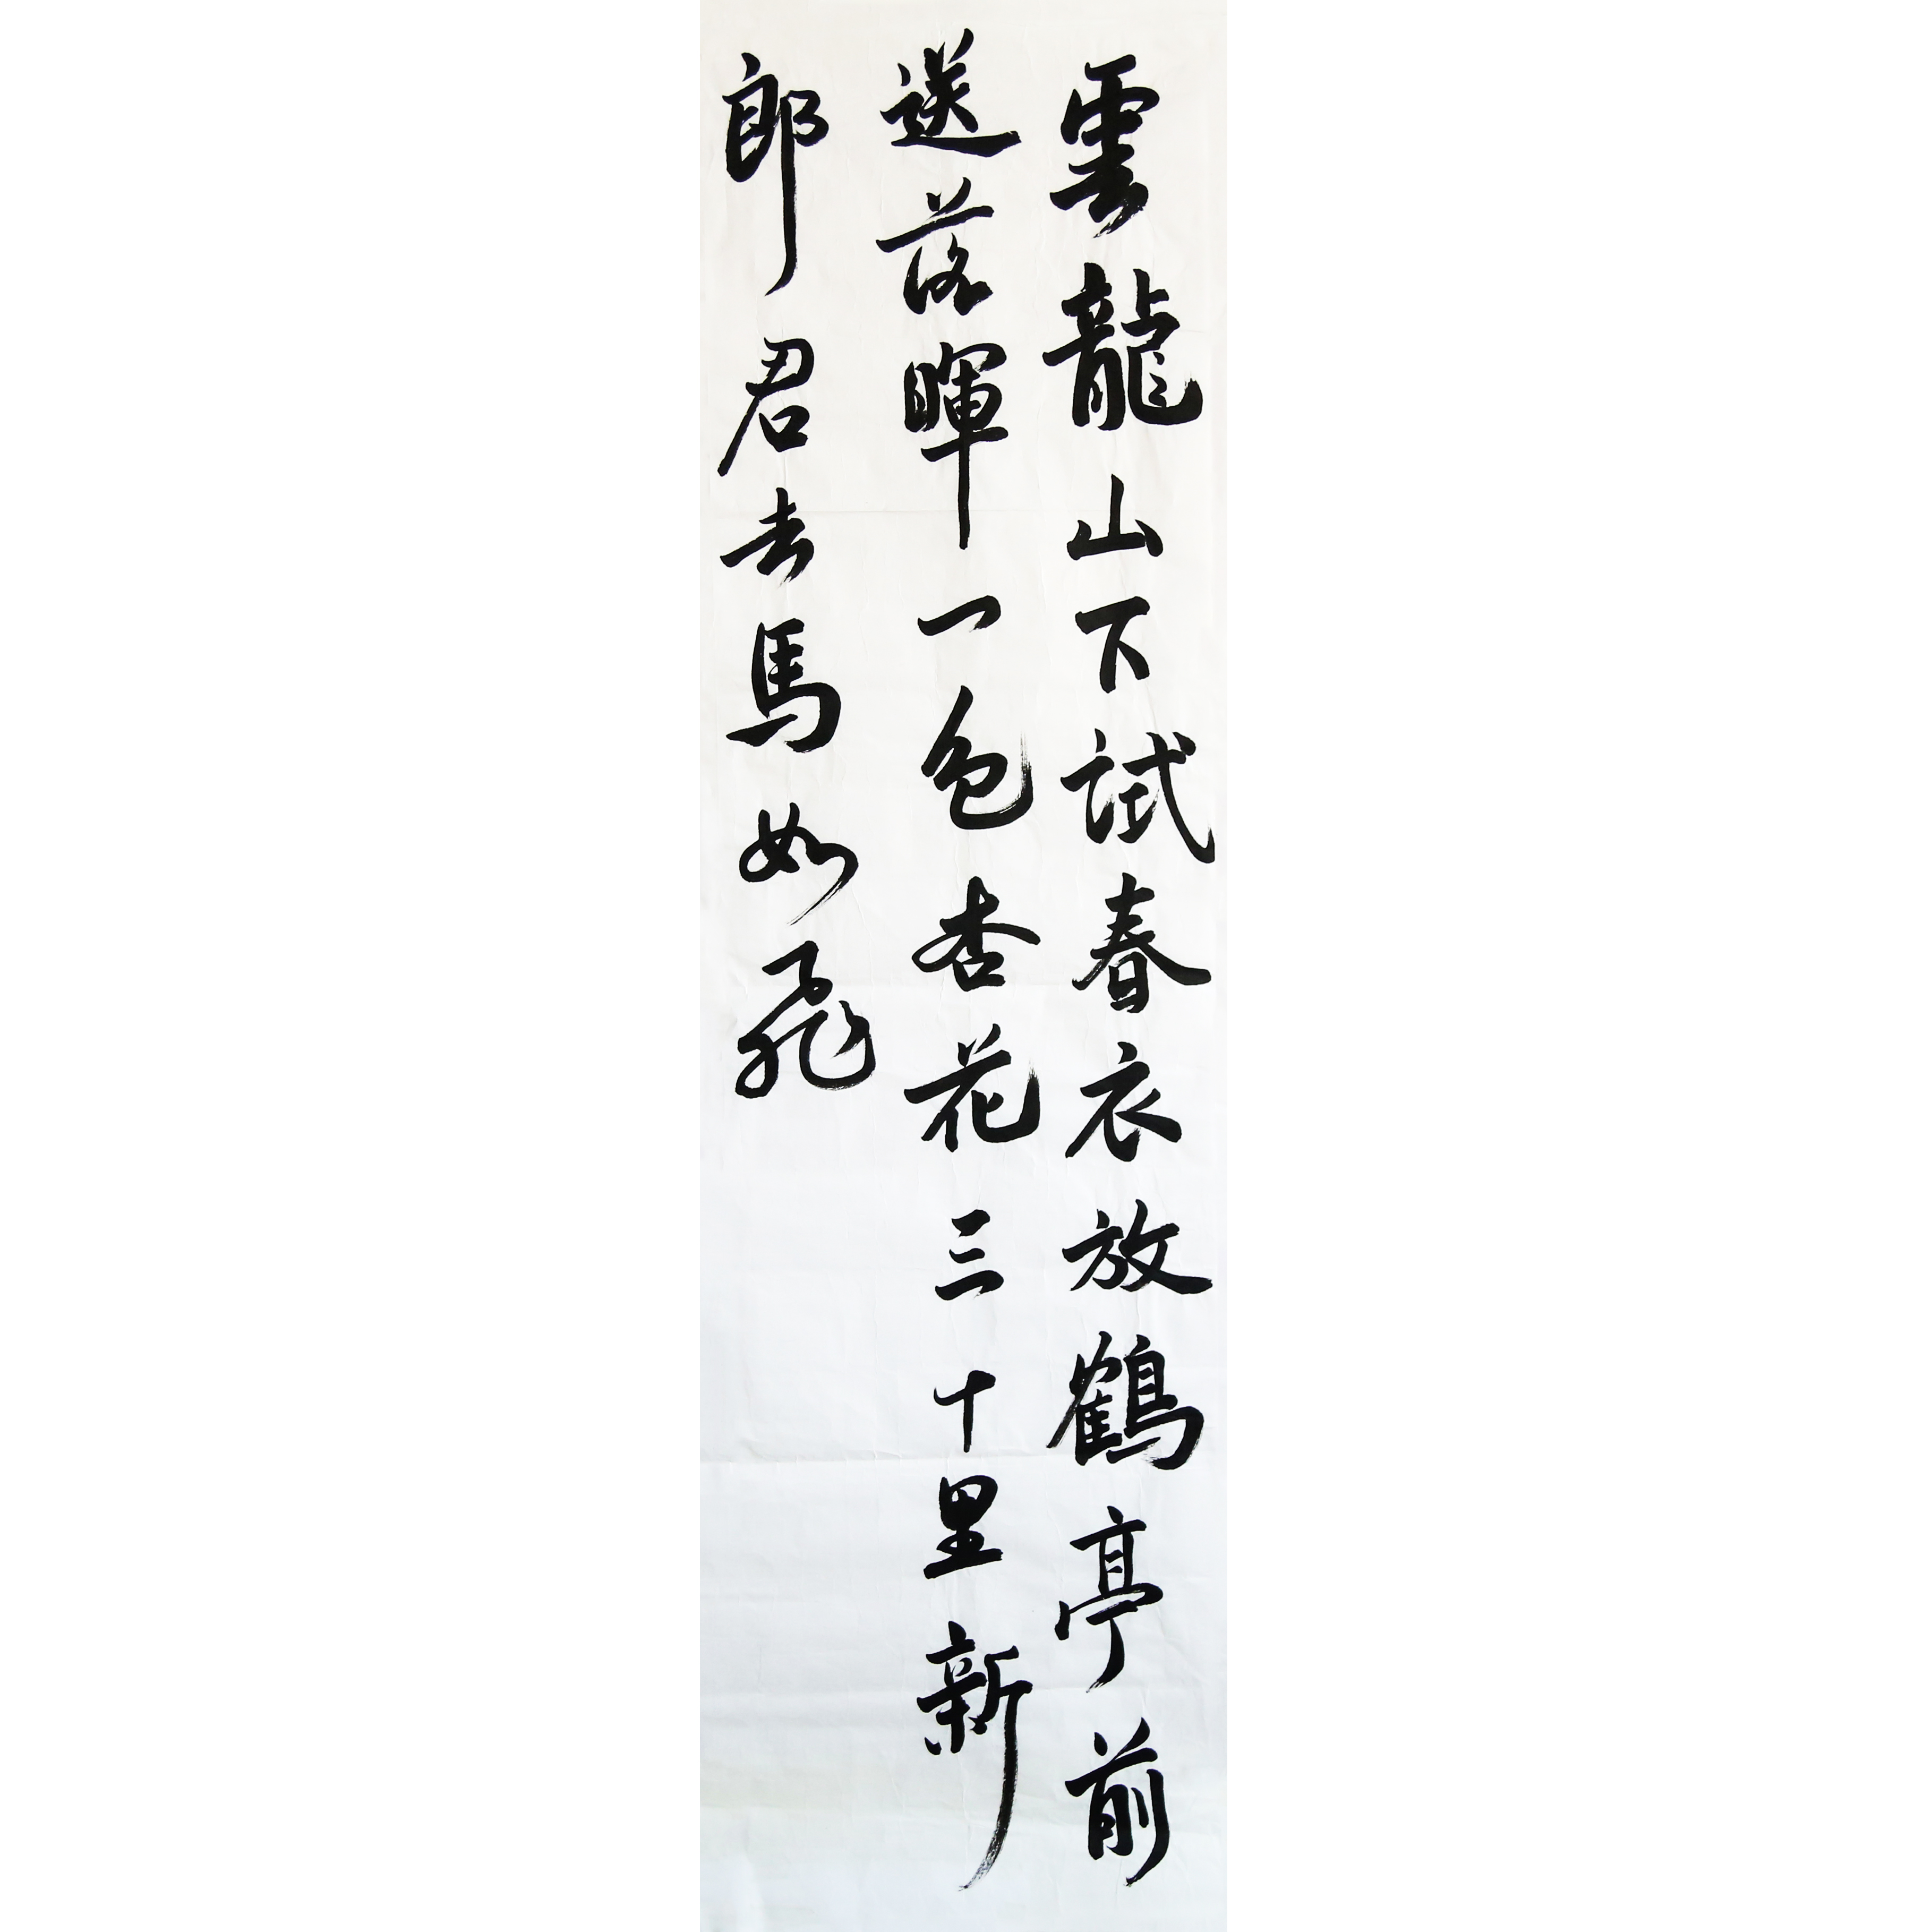 雲龍山下試春衣放鶴亭前
送落暉一色杏花三十里新
郎君去馬如飛